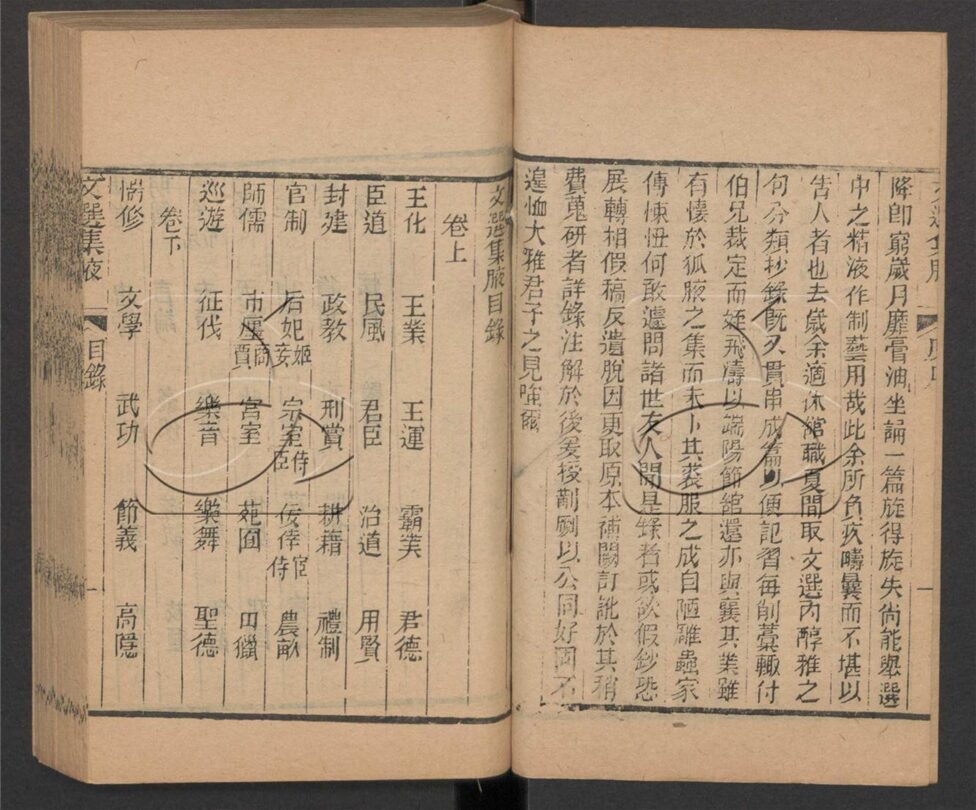 降卽窮歲月靡膏油坐誦一篇旋得旋失尙能舉選
中之精液作制藝用哉此余所負疚疇曩而不堪以
吿人者也去歲余適休綰職夏間取文選內醇雅之
句分類抄錄旣又貫串成篇以便記習每削藁輙付
伯兄裁定而姪飛濤以端陽節綰還亦與襄其業雖
有懐於狐腋之集而未卜其裘服之成自陋雕蟲家
傳悚忸何敢遽問諸世友人聞是錄者或欲假鈔恐
展轉相假稿反遺脫因更取原本補闕訂訛於其稍
費蒐研者詳錄注解於後爰授剞劂以公同好固不
遑恤大雅君子之見嗤爾
文選集腋目錄
卷上
王化 王業 王運 霸業 君德
臣道 民風 君臣 治道 用賢
封建 政教 刑賞 耕藉 禮制
官制 后妃姬妾 宗室侍臣 佞倖宦侍 農畝
師儒 市廛商賈 宮室 苑囿 田獵
巡遊 征伐 樂音 樂舞 聖德
卷下
偹修 文學 武功 節義 高隱
文選集腋 目錄 一